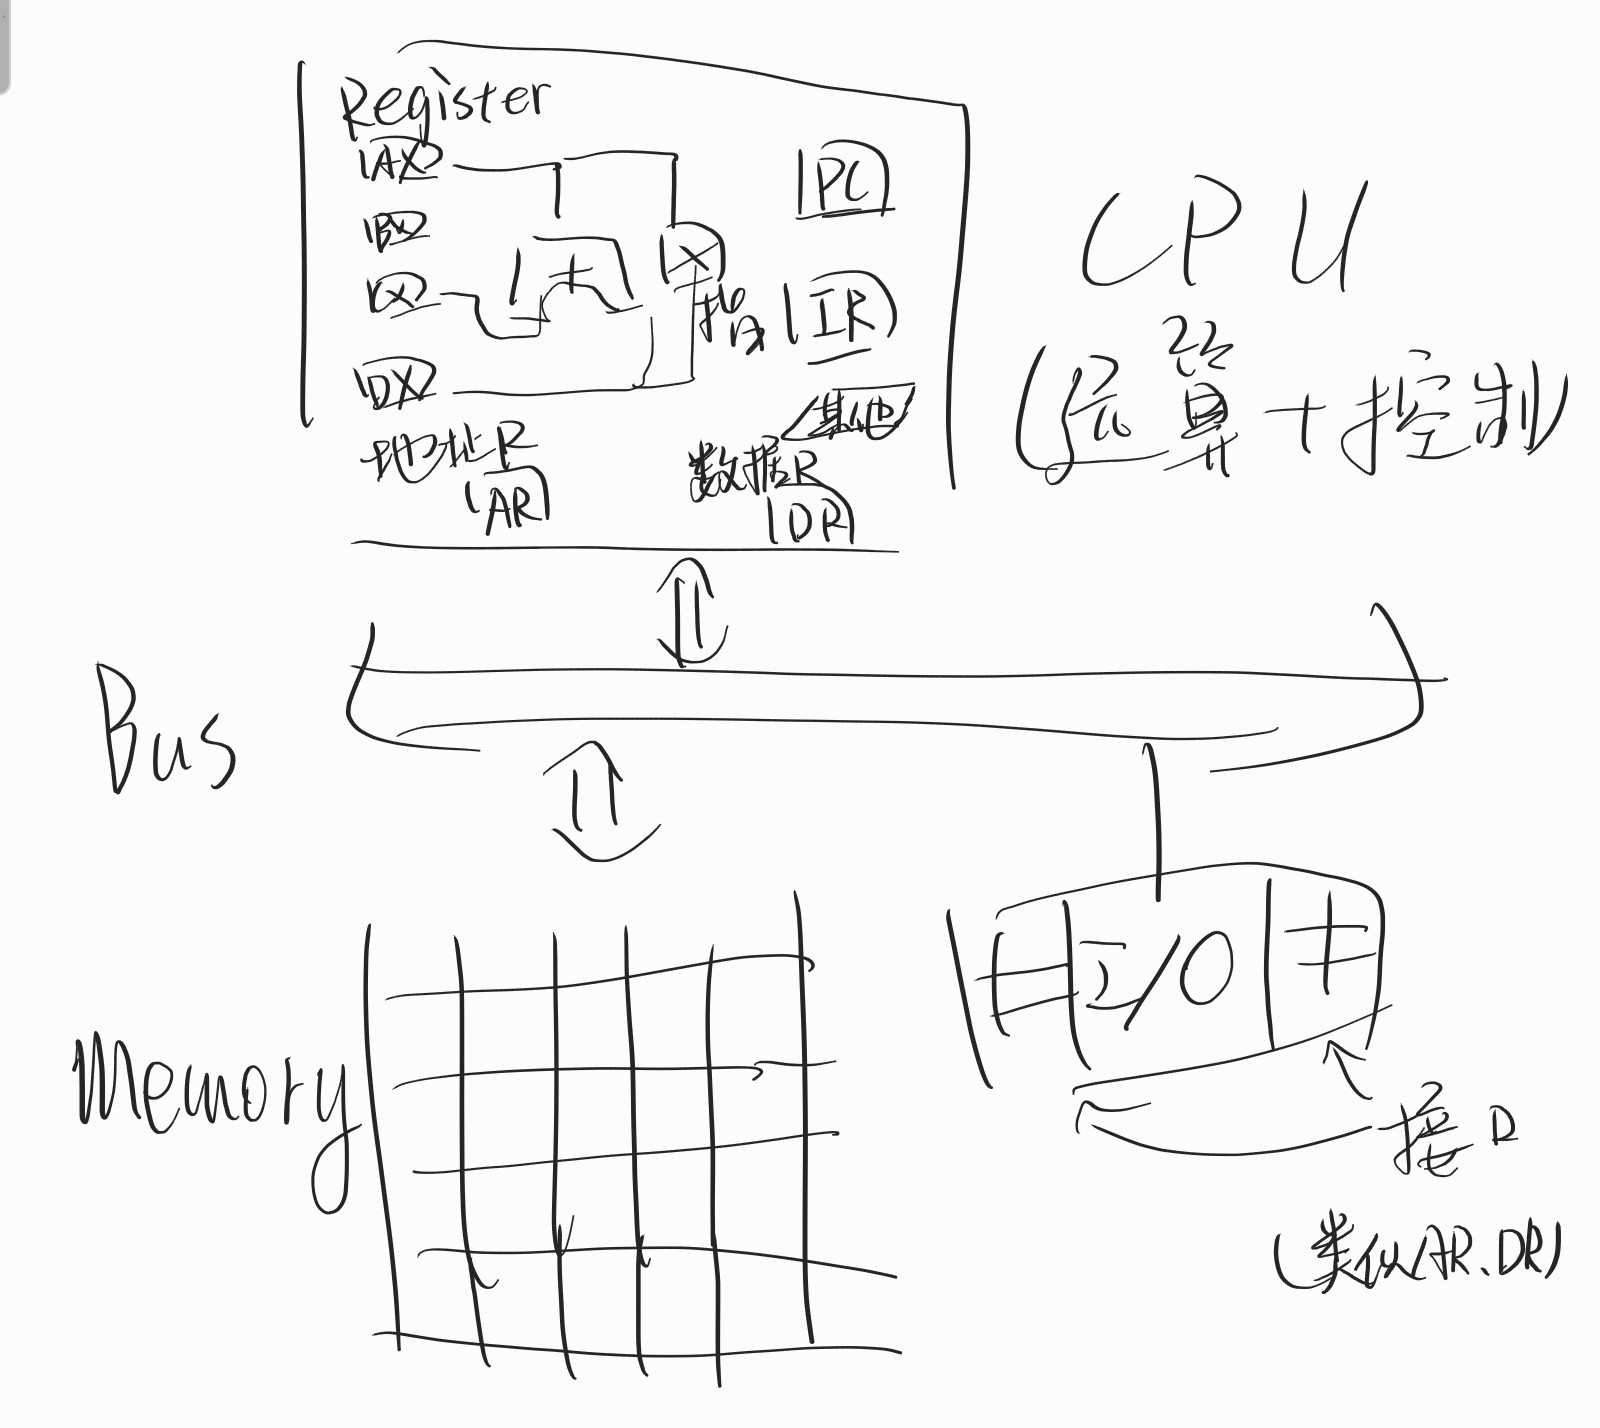 Register
AX
BX
+
×
PC
CX
IR
DX
其他
地址R
AR
数据R
DR
CPU
(运算+控制)
Bus
I/O
Memory
接口
(类似AR、DR)